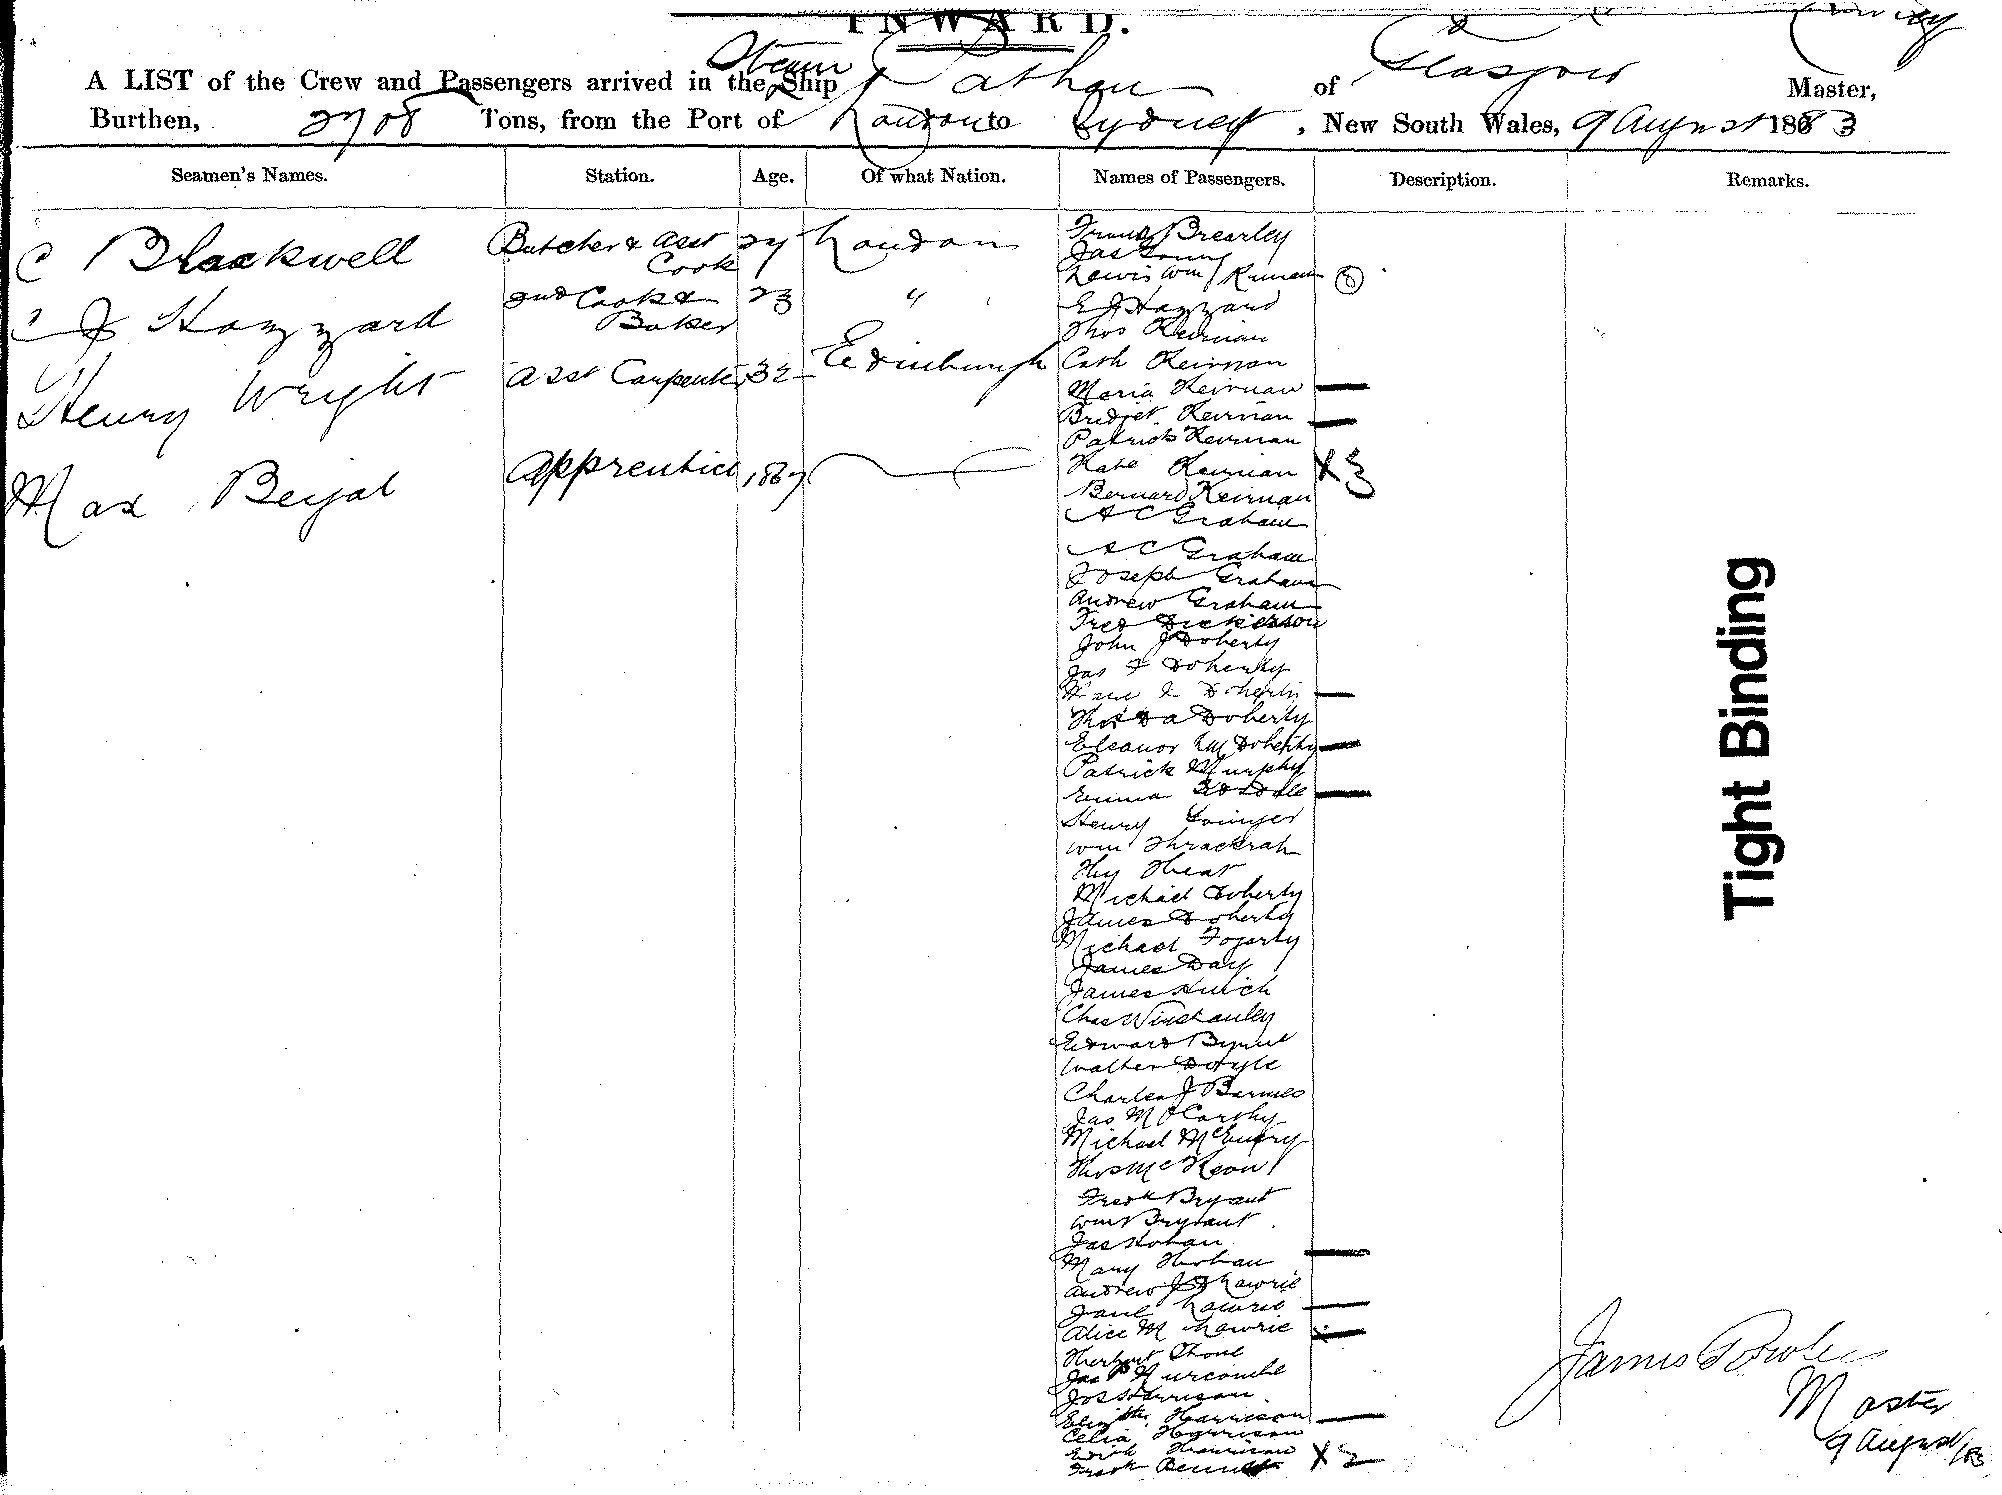 INWARD.
A LIST of the Crew and Passengers arrived in the Steam Ship Pathan of Glasgow Master,
Burthen, 2708 Tons, from the Port of London to Sydney, New South Wales, 9 August 1883
Seamen's Names. Station. Age. Of what Nation. Names of Passengers. Description. Remarks.
C Blackwell Butcher & Asst Cook 27 London
J Hazzard 2nd Cook & Baker 23 "
Henry Wright Asst Carpenter 32 Edinburgh
Max Apprentice 1867
Brearley
Jas
Lewis Wm
E J Hazzard
Thos Keirnan
Cath Keirnan
Maria Keirnan
Bridget Keirnan
Patrick Keirnan
Kate Keirnan X 3
Bernard Keirnan
A C Graham
A C Graham
Joseph Graham
Andrew Graham
Fred Dickesson
John J Doherty
Jas F Doherty
Doherty
Thos Da Doherty
Eleanor Doherty
Patrick Murphy
Emma
Henry
Wm Thrackrah
Hy
Michael Doherty
James Doherty
Michael Fogarty
James Day
James
Chas Winstanley
Edward
Walter Doyle
Charles J Barnes
Jas McCarthy
Michael McEnery
Thos McKeon
Fredk Bryant
Wm Bryant
Jas Hohan
Mary Hohan
Andrew J Lawrie
Jane Lawrie
Alice M Lawrie
Herbert
Jas P Hurcombe
Jos Harrison
Elizth Harrison
Celia Harrison
Edith Harrison
Frank Bennett X 2
Tight Binding
James Rowley
Master
9 August/83